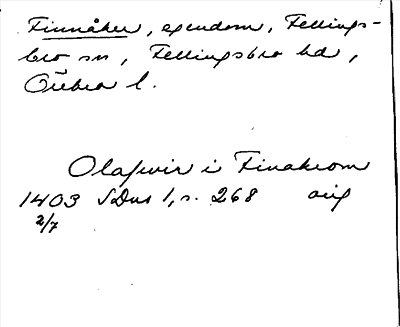 Finnåker, egendom, Fellings-
bro sn, Fellingsbro hd,
Örebro l.
Olafwir i Finakrom
1403 SDns 1, s. 268 orig
2/7